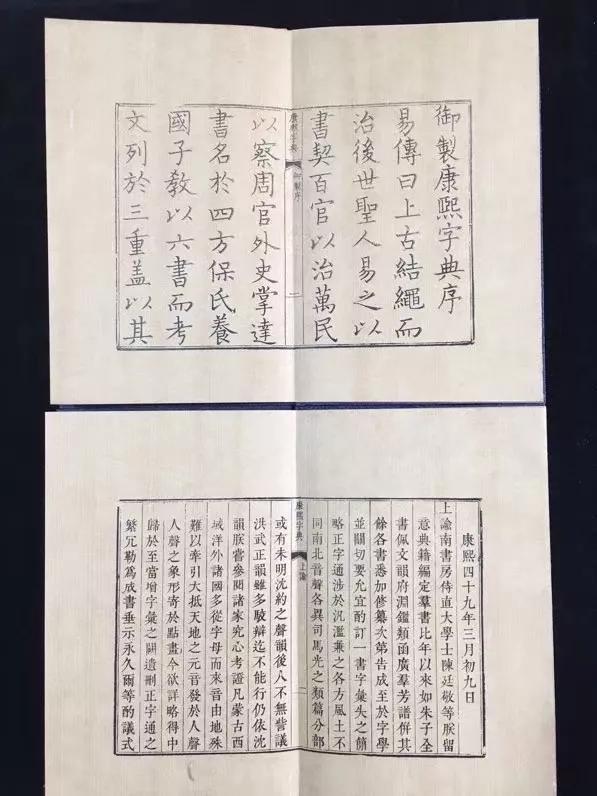 御製康熙字典序
易傳曰上古結繩而
治後世聖人易之以
書契百官以治萬民
康熙字典
御製序
一
以察周官外史掌達
書名於四方保氏養
國子教以六書而考
文列於三重盖以其
康熙四十九年三月初九日
上諭南書房侍直大學士陳廷敬等朕留
意典籍編定羣書比年以來如朱子全
書佩文韻府淵鑑類函廣羣芳譜併其
餘各書悉加修纂次第告成至於字學
並關切要允宜酌訂一書字彙失之簡
略正字通涉於汎濫兼之各方風土不
同南北音聲各異司馬光之類篇分部
康熙字典
上諭
一
或有未明沈約之聲韻後人不無訾議
洪武正韻雖多駁辯迄不能行仍依沈
韻朕嘗參閱諸家究心考證凡蒙古西
域洋外諸國多從字母而來音由地殊
難以牽引大抵天地之元音發於人聲
人聲之象形寄於點畫今欲詳略得中
歸於至當增字彙之闕遺刪正字通之
繁冗勒為成書垂示永久爾等酌議式